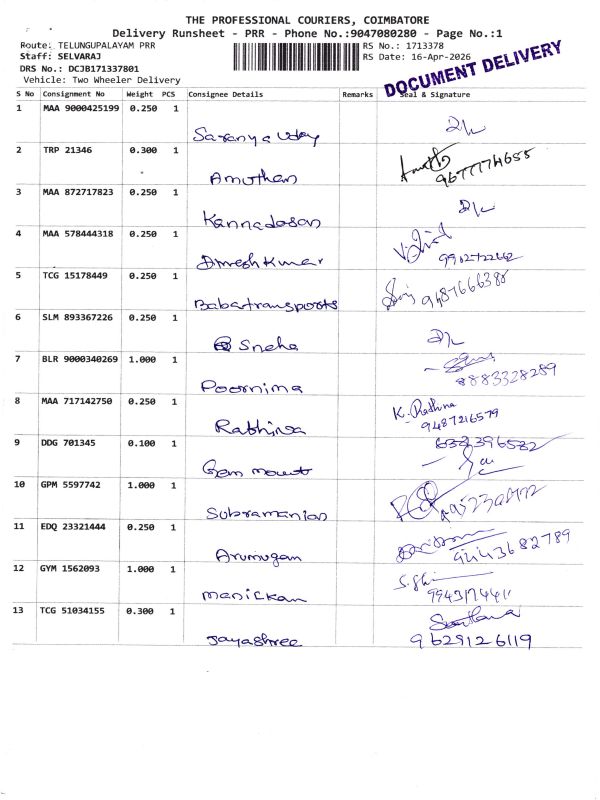 THE PROFESSIONAL COURIERS, COIMBATORE
Delivery Runsheet - PRR - Phone No.:9047080280 - Page No.:1
Route: TELUNGUPALAYAM PRR
RS No.: 1713378
Staff: SELVARAJ
RS Date: 16-Apr-2026
DRS No.: DCJB171337801
Vehicle: Two Wheeler Delivery
DOCUMENT DELIVERY
S No Consignment No Weight PCS Consignee Details Remarks Seal & Signature
1 MAA 9000425199 0.250 1
Saranya Uday
2 TRP 21346 0.300 1
Amuthan 9677774655
3 MAA 872717823 0.250 1
Kannadosan
4 MAA 578444318 0.250 1
Dineshkumar
5 TCG 15178449 0.250 1
Babatransports 9487666388
6 SLM 893367226 0.250 1
Sneha
7 BLR 9000340269 1.000 1
Poornima 8883328289
8 MAA 717142750 0.250 1
K. Rathna
Rabhiya 9487216579
9 DDG 701345 0.100 1
Gem mount
10 GPM 5597742 1.000 1
Subramanian
11 EDQ 23321444 0.250 1
Arumugam
12 GYM 1562093 1.000 1
Manickam
13 TCG 51034155 0.300 1
Jayashree 9629126119